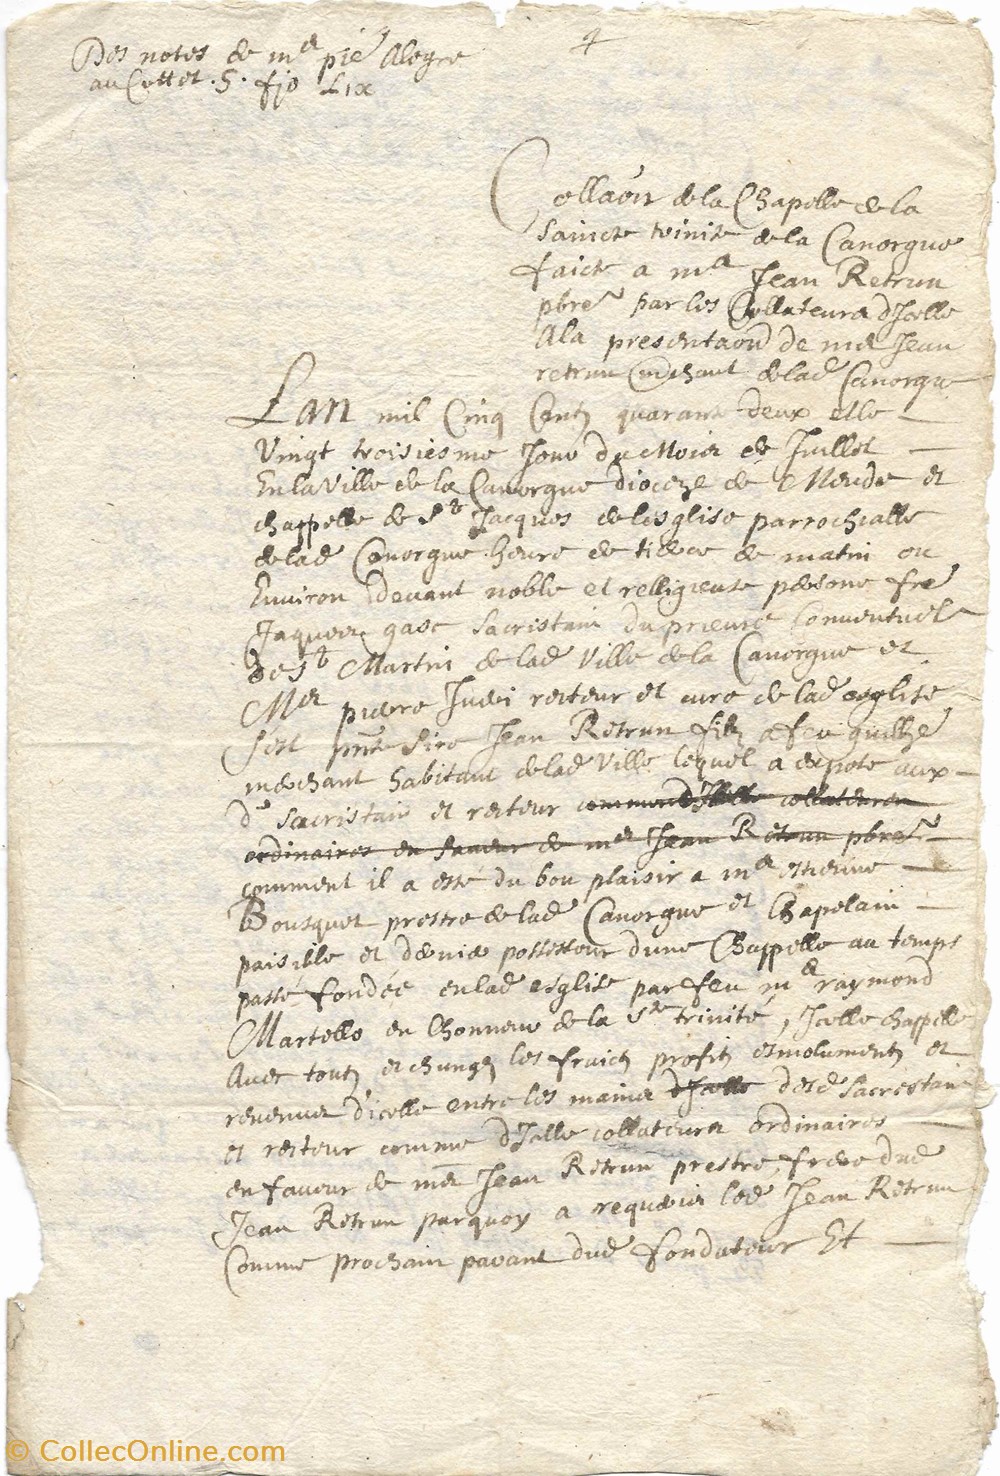 Des notes de me pie Alegre
au Cottet . 5 . fo Lix
Collaon de la Chapelle de la
saincte trinite de la Canorgue
faicte a me Jean Retrun
pbre par les Collateurs d'Icelle
A la presentaon de me Jean
retrun mchant delad Canorgue
Lan mil Cinq Centz quarante deux et le
Vingt troisiesme Jour du Mois de Juillet
En la Ville de la Canorgue dioceze de Mende et
chappelle de St Jacques de lesglise parrochialle
delad Canorgue heure de tierce de matin ou
Environ devant noble et relligieuse psone fre
Jaques gasc sacristain du prieure Conventuel
de St Martin de lad Ville de la Canorgue et
Me pierre Juery recteur et cure de lad esglise
sest pnte sire Jean Retrun filz a feu guilhe
merchant habitant delad Ville lequel a expose aux
ds sacristain et recteur comme d'Icelle collateurs
ordinaires en faveur de me Jean Retrun pbre
comment il a esté du bon plaisir a me estienne
Bousquet prestre de lad Canorgue et Chapelain
paisible et dernier possesseur dune Chappelle au temps
passé fondée en lad esglise par feu me raymond
Martello en Lhonneur de la Ste trinité, Icelle chappelle
Avec toutz et chungz les fruictz profitz esmolumentz et
revenus d'icelle entre les mains d'Icelle desd Sacrestain
et recteur comme d'Icelle collateurs ordinaires
en faveur de me Jean Retrun prestre, frere dud
Jean Retrun parquoy a requerir led Jean Retrun
Comme prochain parant dud fondateur Et
© CollecOnline.com